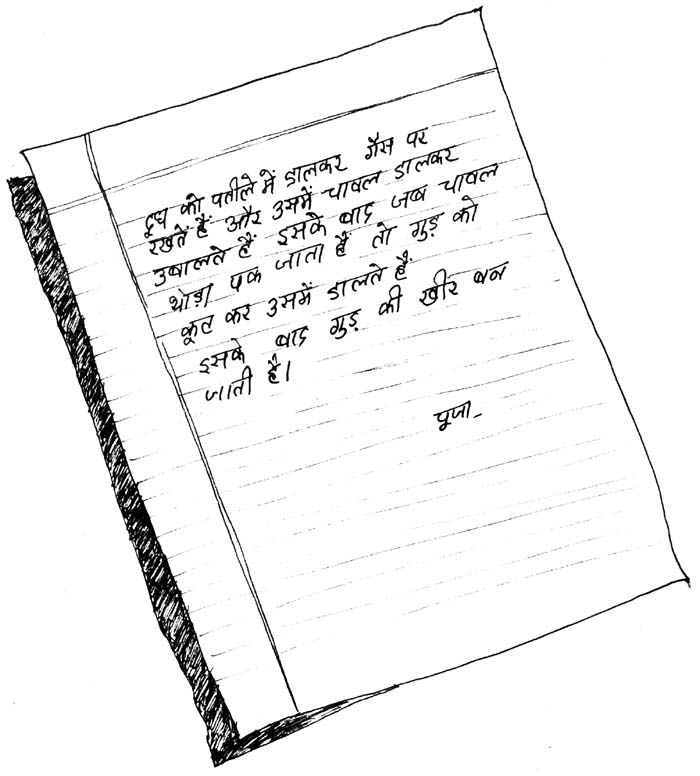 दूध को पतीले में डालकर गैस पर
रखतें हैं और उसमें चावल डालकर
उबालते हैं इसके बाद जब चावल
थोड़ा पक जाता हैं तो गुड़ को
कूट कर उसमें डालते हैं
इसके बाद गुड़ की खीर बन
जाती है।
पूजा-